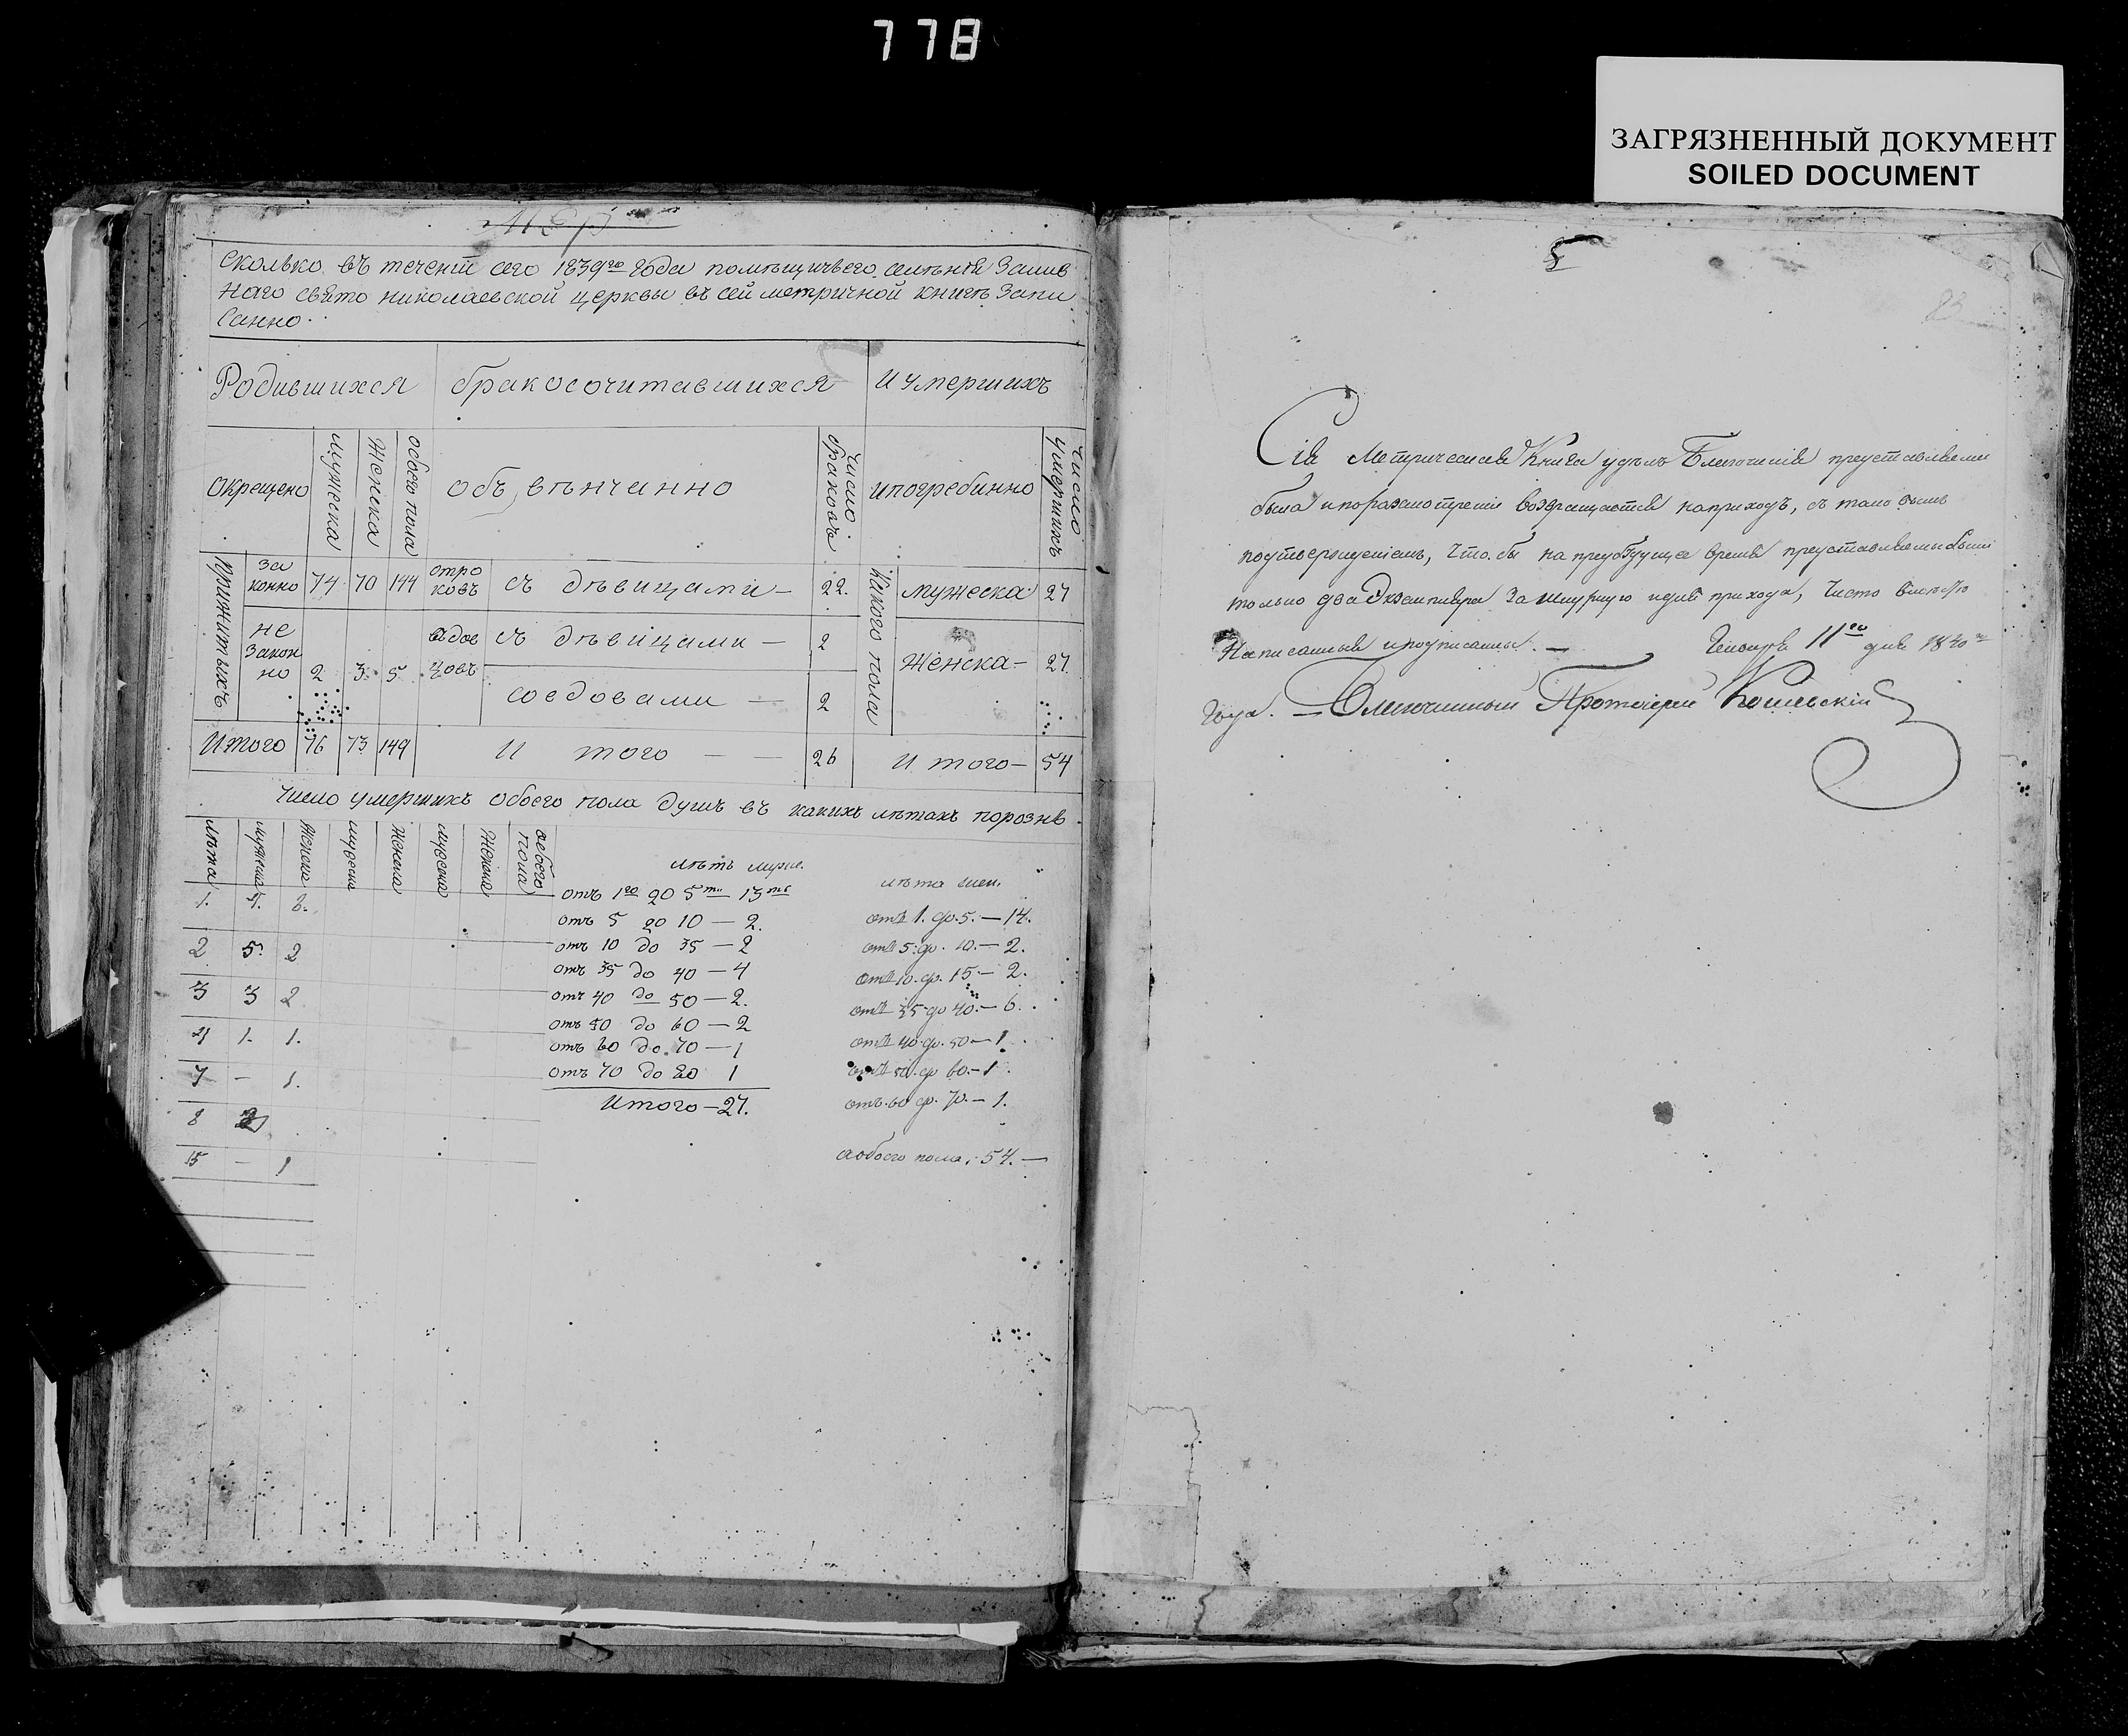 778
ЗАГРЯЗНЕННЫЙ ДОКУМЕНТ
SOILED DOCUMENT
Сколько въ теченіи сего 1839го года помѣщичьего селѣнія Залив
наго свято николаевской церквы въ сей метричной книгѣ Запи
санно.
Родившихся бракосочитавшихся и умершихъ
окрещено мужеска Женска обоего пола объвѣнчанно число браковъ ипогребинно число умершихъ
прижитыхъ
за конно 74 70 144 отро ковъ съ дѣвицами — 22. Какого пола мужеска 27
не закон но 2 3 5 вдов цовъ съ дѣвицами — 2 Женска — 27
совдовами — 2
Итого 76 73 149 И того — — 26 И того — 54
Число умершихъ обоего пола душъ въ какихъ лѣтахъ порознь.
лѣта мужеска Женска мужеска Женска мужеска Женска обоего пола
лѣтъ мужс. лѣта жен.
1. 4. 8. отъ 1го до 5ти — 13ть отъ 1. до. 5. — 14.
отъ 5 до 10 — 2. отъ 5. до. 10. — 2.
2 5. 2 отъ 10 до 35 — 2 отъ 10. до. 15 — 2.
отъ 35 до 40 — 4
3 3 2. отъ 40 до 50 — 2. отъ 35 до 40. — 6.
отъ 50 до 60 — 2
4 1. 1. отъ 60 до. 70 — 1 отъ 40. до. 50 — 1.
7 — 1. отъ 70 до 80 1 отъ 50. до 60. — 1.
Итого — 27. отъ. 60 до. 70. — 1.
8 2
15 — 1 аобоего пола. 54. —
83
Сія Метрическая Книга Благочинія представляема
была ипоразсмотреніи возвращается наприходъ, съ тѣмъ
подтвержденіемъ, Что. бы на предбудущее время представляемы были
только два Экземпляра За шнурную идля прихода, Чисто
Написанныя иподписанныя. — Генваря 11го дня 1840го
года. — Благочинный Протоіерей